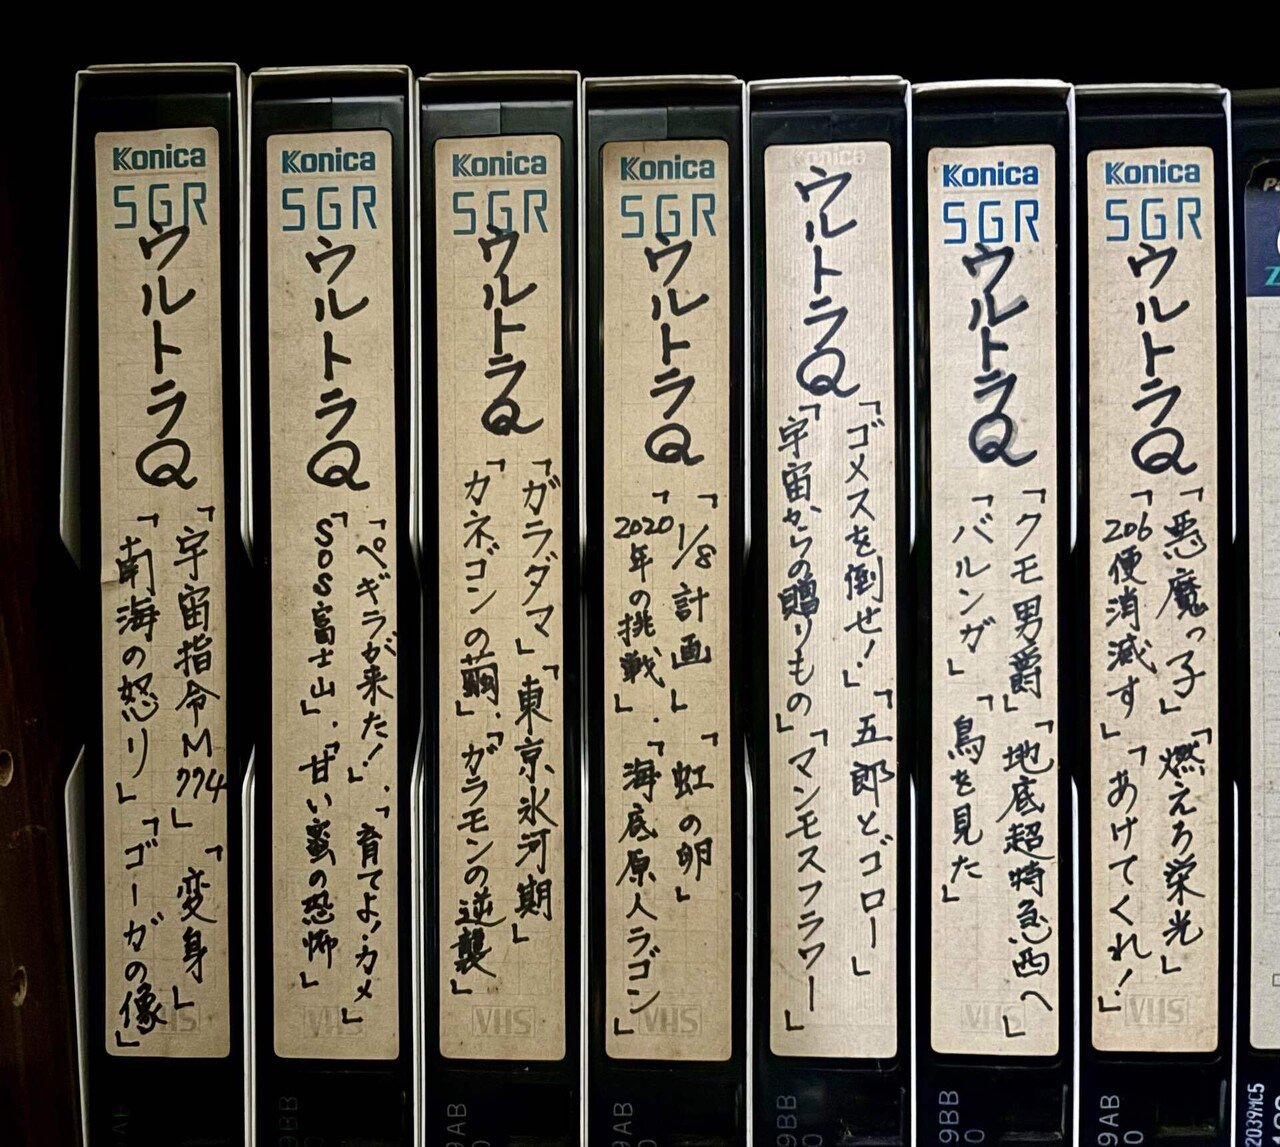 Konica
SGR
ウルトラQ
「宇宙指令M774」「変身」
「南海の怒り」「ゴーガの像」
VHS
Konica
SGR
ウルトラQ
「ペギラが来た!」.「育てよ!カメ」
「SOS富士山」.「甘い蜜の恐怖」
VHS
9BB
Konica
SGR
ウルトラQ
「ガラダマ」「東京氷河期」
「カネゴンの繭」.「ガラモンの逆襲」
VHS
9AB
Konica
SGR
ウルトラQ
「1/8計画」「虹の卵」
「2020年の挑戦」.「海底原人ラゴン」
VHS
9AB
0
Konica
ウルトラQ
「ゴメスを倒せ!」「五郎とゴロー」
「宇宙からの贈りもの」「マンモスフラワー」
9BB
0
Konica
SGR
ウルトラQ
「クモ男爵」「地底超特急西へ」
「バルンガ」「鳥を見た」
VHS
9BB
0
Konica
SGR
ウルトラQ
「悪魔っ子」「燃えろ栄光」
「206便消滅す」「あけてくれ!」
VHS
9AB
0
2039MC5